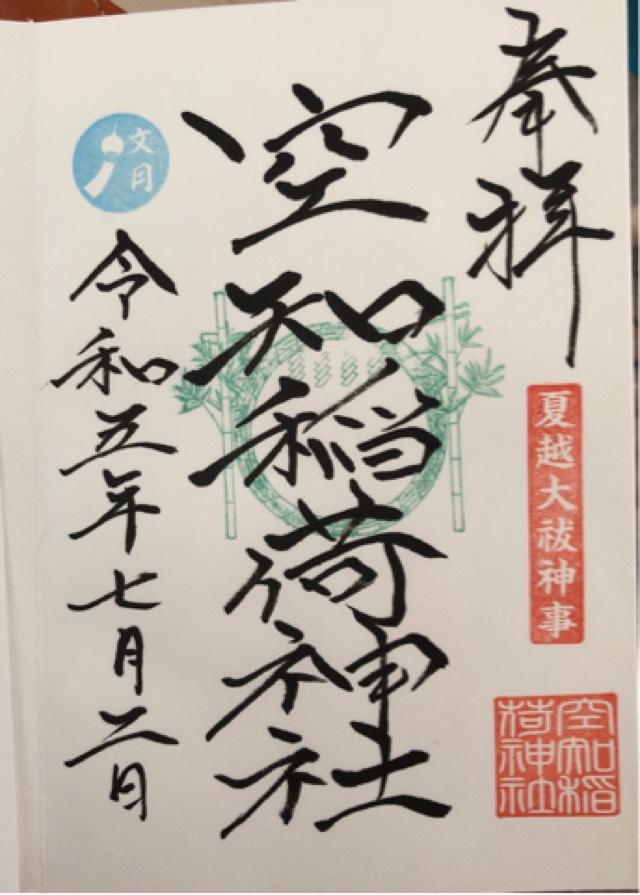 奉拝
夏越大祓神事
空知稲荷神社
空知稲荷神社
文月
令和五年七月二日